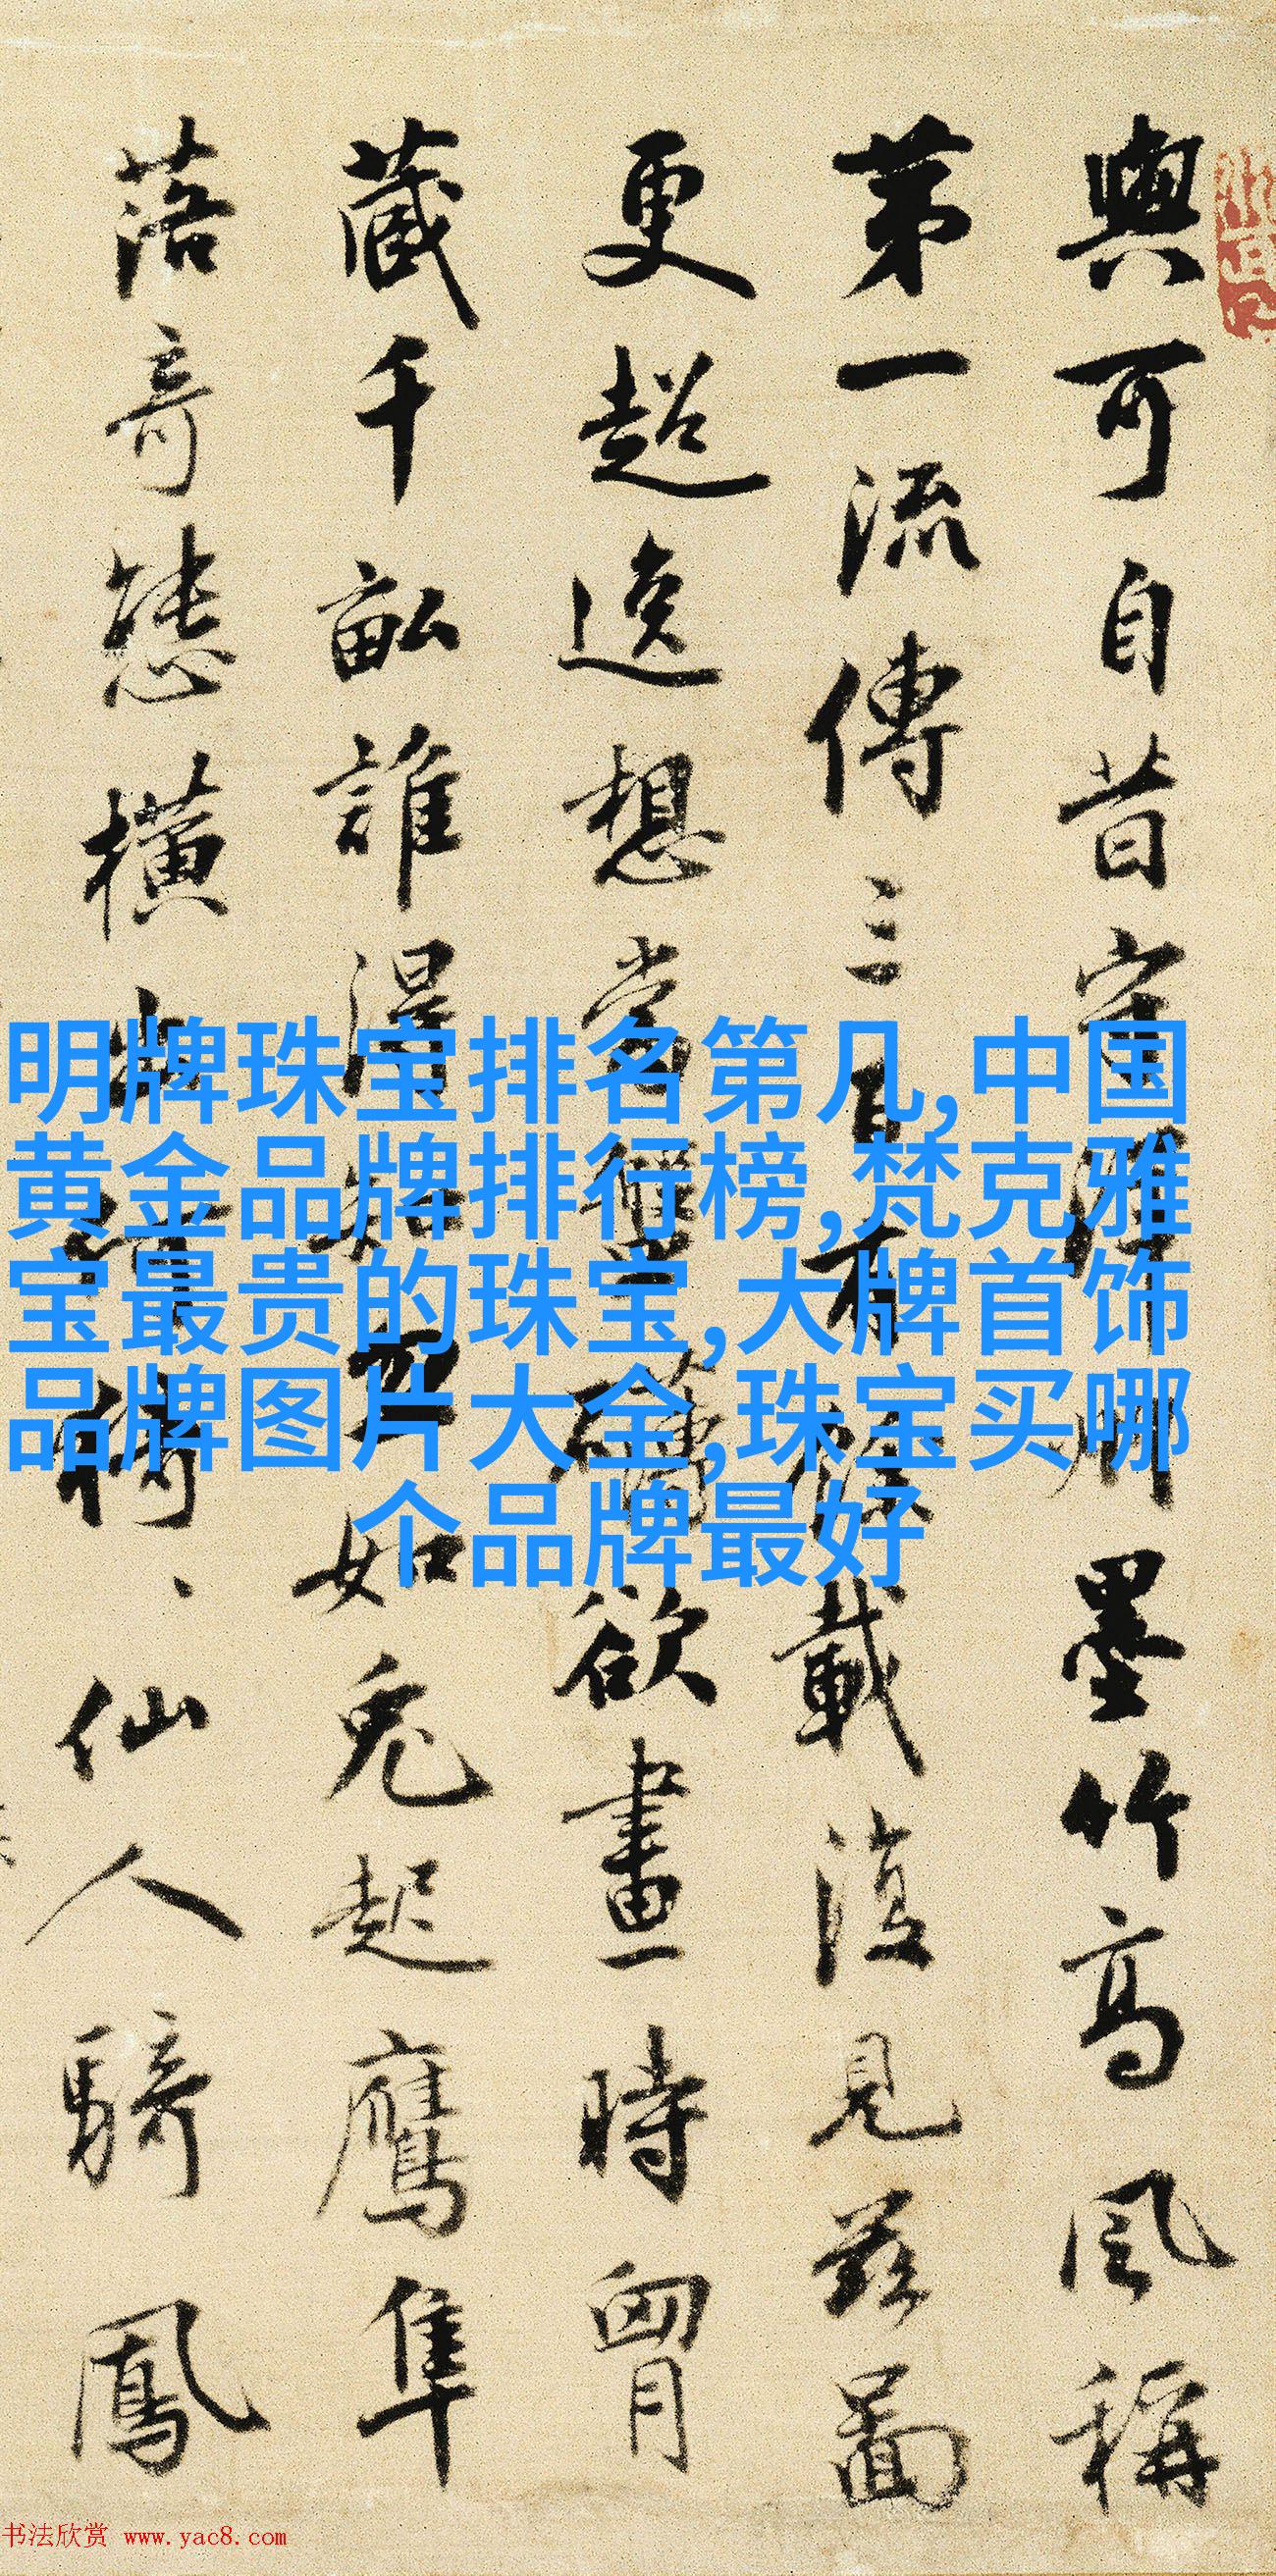 與可自昔守州墨竹高風稱
第一流傳三百有餘載復見茲圖
更超逸想當盤礴欲畫時胷
藏千畝誰得知如兔起鷹隼
落奇態橫出仙人騎鳳
明牌珠宝排名第几,中国
黄金品牌排行榜,梵克雅
宝最贵的珠宝,大牌首饰
品牌图片大全,珠宝买哪
个品牌最好
书法欣赏 www.yac8.com